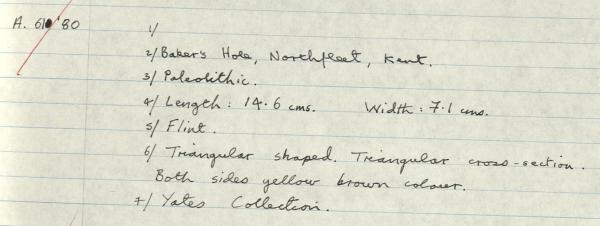 A. 610/80
1/
2/ Baker's Hole, Northfleet, Kent.
3/ Paleolithic.
4/ Length: 14.6 cms. Width: 7.1 cms.
5/ Flint.
6/ Triangular shaped. Triangular cross-section.
Both sides yellow brown colour.
7/ Yates Collection.